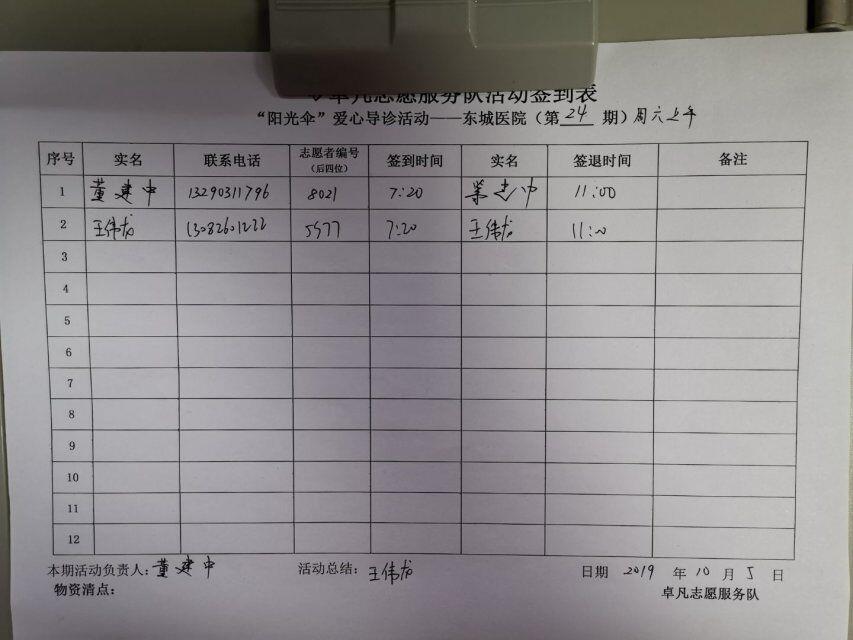 卓凡志愿服务队活动签到表
“阳光伞”爱心导诊活动——东城医院（第 24 期）周六上午
序号 实名 联系电话 志愿者编号（后四位） 签到时间 实名 签退时间 备注
1 董建中 13290311796 8021 7:20 董建中 11:00
2 王伟龙 13082601222 5577 7:20 王伟龙 11:0
3
4
5
6
7
8
9
10
11
12
本期活动负责人：董建中 活动总结：王伟龙 日期 2019 年 10 月 5 日
物资清点： 卓凡志愿服务队